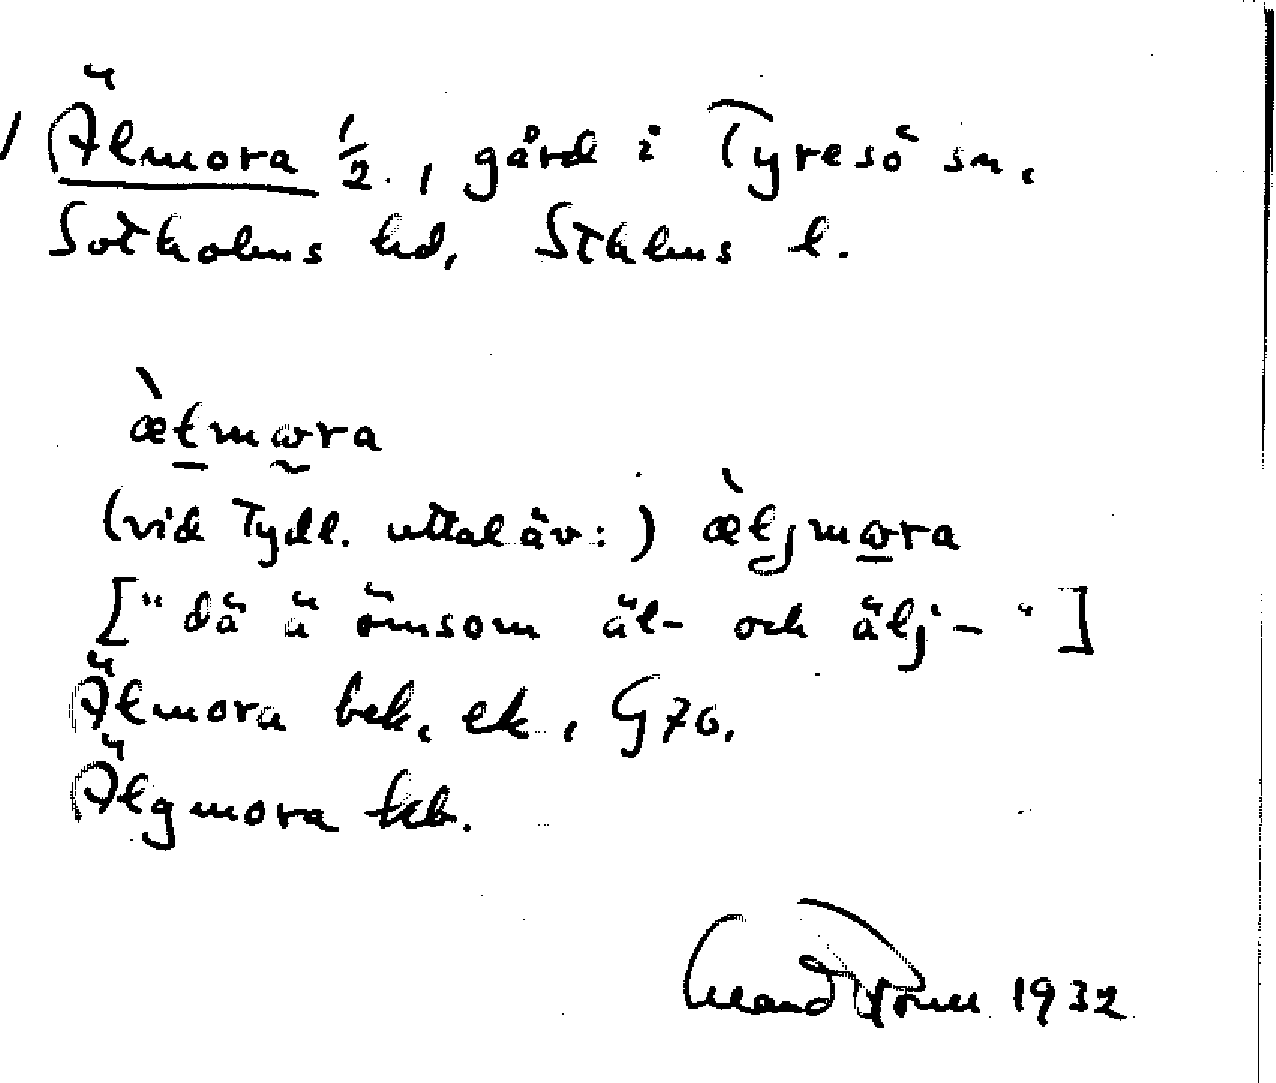 Älmora ½., gård i Tyresö sn.
Sotholms hd, Sthlms l.
æ̀lmωra
(vid tydl. uttal äv:) æ̀ljmωra
["dä ä ömsom äl- och älj-"]
Älmora bek. ek., G70.
Älgmora kb.
1932